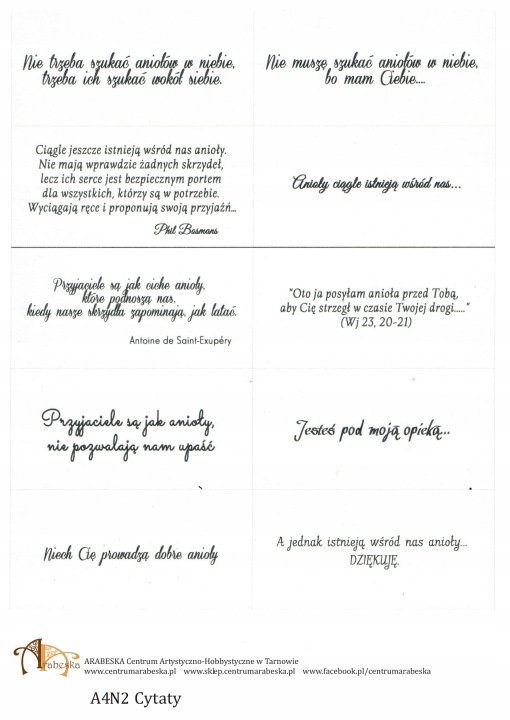 Nie trzeba szukać aniołów w niebie,
trzeba ich szukać wokół siebie.
Nie muszę szukać aniołów w niebie,
bo mam Ciebie....
Ciągle jeszcze istnieją wśród nas anioły.
Nie mają wprawdzie żadnych skrzydeł,
lecz ich serce jest bezpiecznym portem
dla wszystkich, którzy są w potrzebie.
Wyciągają ręce i proponują swoją przyjaźń...
Phil Bosmans
Anioły ciągle istnieją wśród nas...
Przyjaciele są jak ciche anioły,
które podnoszą nas,
kiedy nasze skrzydła zapominają, jak latać.
Antoine de Saint-Exupéry
"Oto ja posyłam anioła przed Tobą,
aby Cię strzegł w czasie Twojej drogi....."
(Wj 23, 20-21)
Przyjaciele są jak anioły,
nie pozwalają nam upaść
Jesteś pod moją opieką...
Niech Cię prowadzą dobre anioły
A jednak istnieją wśród nas anioły...
DZIĘKUJĘ.
Arabeska
ARABESKA Centrum Artystyczno-Hobbystyczne w Tarnowie
www.centrumarabeska.pl www.sklep.centrumarabeska.pl www.facebook.pl/centrumarabeska
A4N2 Cytaty